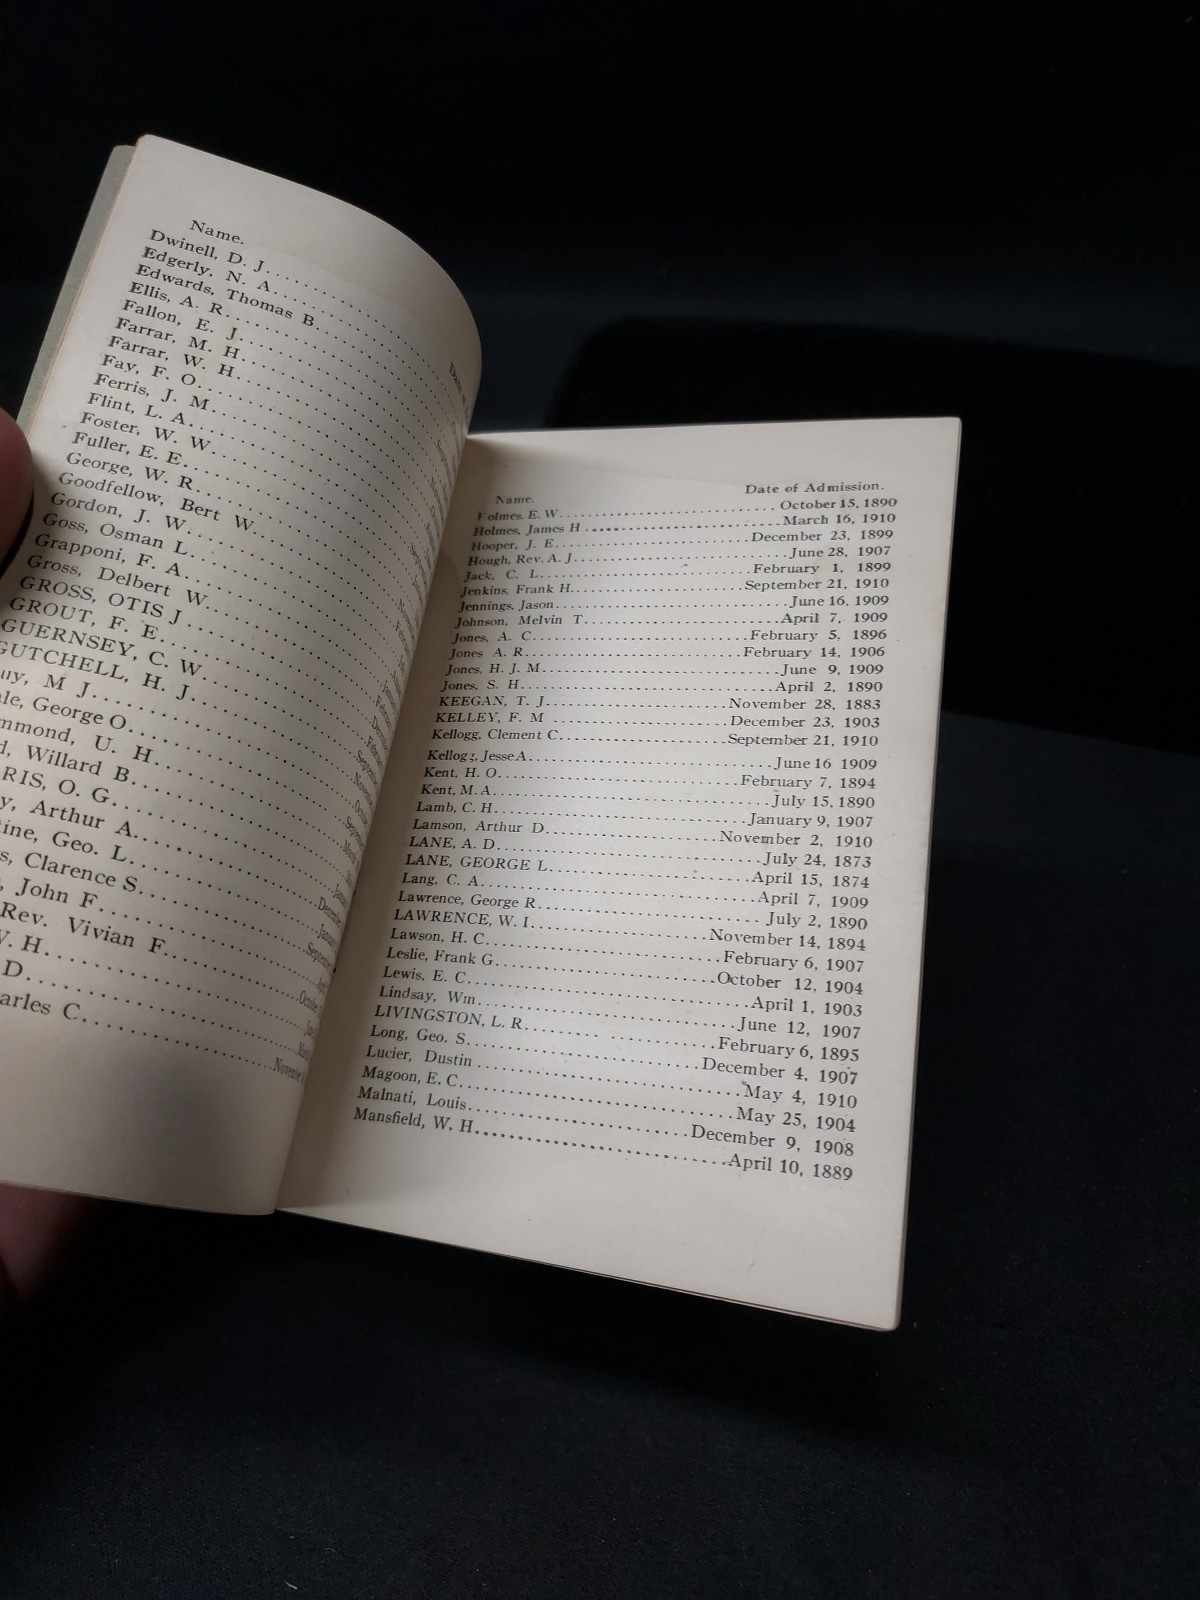 Name.
Dwinell, D. J.
Edgerly, N. A.
Edwards, Thomas B.
Ellis, A. R.
Fallon, E. J.
Farrar, M. H.
Farrar, W. H.
Fay, F. O.
Ferris, J. M.
Flint, L. A.
Foster, W. W.
Fuller, E. E.
George, W. R.
Goodfellow, Bert W.
Gordon, J. W.
Goss, Osman L.
Grapponi, F. A.
Gross, Delbert W.
GROSS, OTIS J.
GROUT, F. E.
GUERNSEY, C. W.
GUTCHELL, H. J.
M J.
George O.
U. H.
Willard B.
O. G.
Arthur A.
Geo. L.
Clarence S.
John F.
Rev. Vivian F.
H.
D.
C.
Name. Date of Admission.
Holmes, E. W. October 15, 1890
Holmes, James H March 16, 1910
Hooper, J. E. December 23, 1899
Hough, Rev. A. J. June 28, 1907
Jack, C. L. February 1, 1899
Jenkins, Frank H. September 21, 1910
Jennings, Jason. June 16, 1909
Johnson, Melvin T. April 7, 1909
Jones, A. C. February 5, 1896
Jones A. R. February 14, 1906
Jones, H. J. M. June 9, 1909
Jones, S. H. April 2, 1890
KEEGAN, T. J. November 28, 1883
KELLEY, F. M December 23, 1903
Kellogg, Clement C. September 21, 1910
Kellogg, Jesse A. June 16 1909
Kent, H. O. February 7, 1894
Kent, M. A. July 15, 1890
Lamb, C. H. January 9, 1907
Lamson, Arthur D. November 2, 1910
LANE, A. D. July 24, 1873
LANE, GEORGE L. April 15, 1874
Lang, C. A. April 7, 1909
Lawrence, George R. July 2, 1890
LAWRENCE, W. I. November 14, 1894
Lawson, H. C. February 6, 1907
Leslie, Frank G. October 12, 1904
Lewis, E. C. April 1, 1903
Lindsay, Wm. June 12, 1907
LIVINGSTON, L. R. February 6, 1895
Long, Geo. S. December 4, 1907
Lucier, Dustin May 4, 1910
Magoon, E. C. May 25, 1904
Malnati, Louis. December 9, 1908
Mansfield, W. H. April 10, 1889